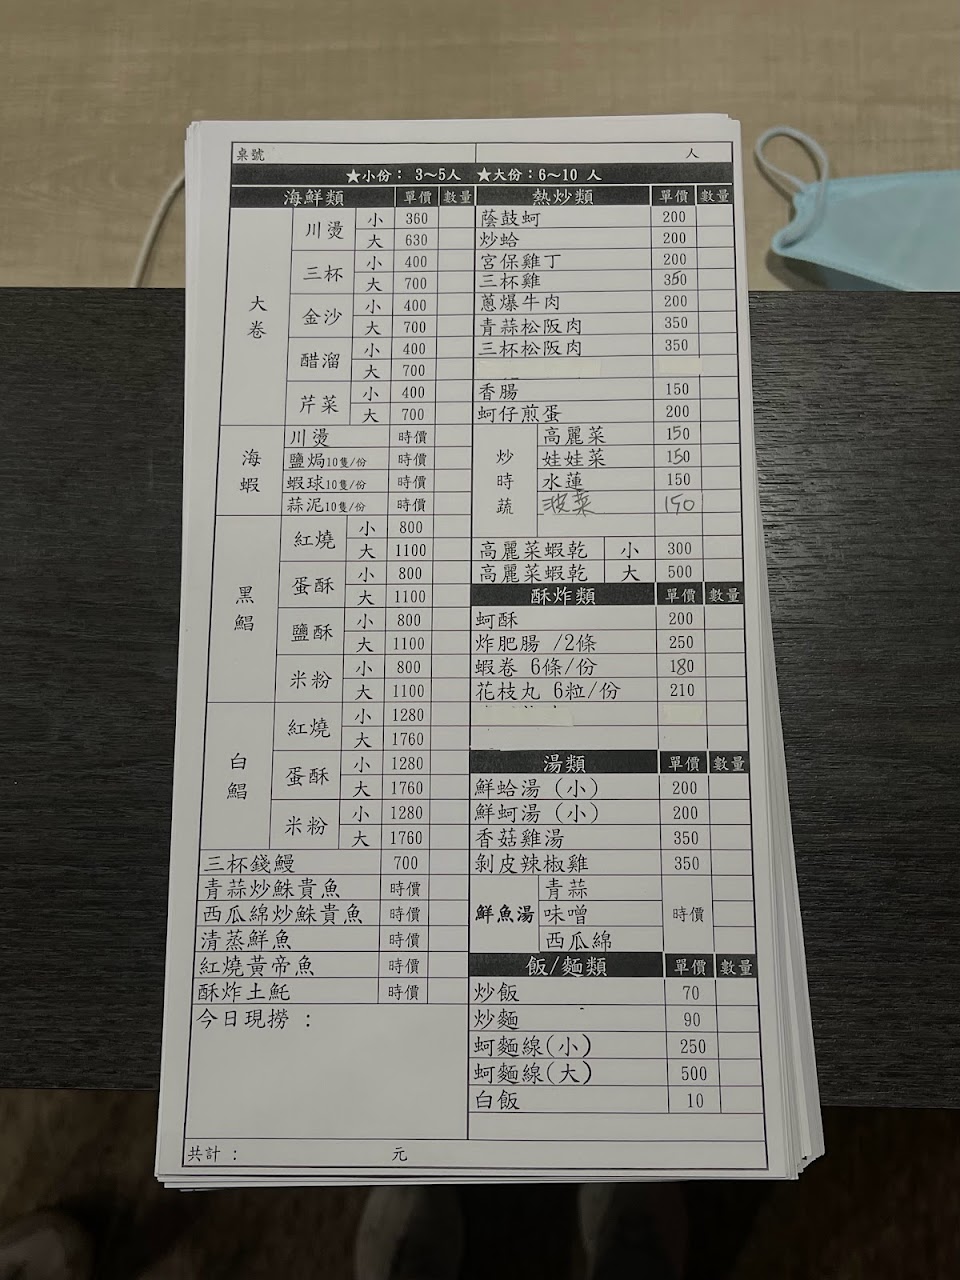 桌號 人
★小份： 3～5人 ★大份：6～10 人
海鮮類 單價 數量
大卷
川燙 小 360
大 630
三杯 小 400
大 700
金沙 小 400
大 700
醋溜 小 400
大 700
芹菜 小 400
大 700
海蝦
川燙 時價
鹽焗10隻/份 時價
蝦球10隻/份 時價
蒜泥10隻/份 時價
黑鯧
紅燒 小 800
大 1100
蛋酥 小 800
大 1100
鹽酥 小 800
大 1100
米粉 小 800
大 1100
白鯧
紅燒 小 1280
大 1760
蛋酥 小 1280
大 1760
米粉 小 1280
大 1760
三杯錢鰻 700
青蒜炒鮢貴魚 時價
西瓜綿炒鮢貴魚 時價
清蒸鮮魚 時價
紅燒黃帝魚 時價
酥炸土魠 時價
今日現撈 ：
熱炒類 單價 數量
蔭鼓蚵 200
炒蛤 200
宮保雞丁 200
三杯雞 350
蔥爆牛肉 200
青蒜松阪肉 350
三杯松阪肉 350
香腸 150
蚵仔煎蛋 200
炒時蔬
高麗菜 150
娃娃菜 150
水蓮 150
菠菜 150
高麗菜蝦乾 小 300
高麗菜蝦乾 大 500
酥炸類 單價 數量
蚵酥 200
炸肥腸 /2條 250
蝦卷 6條/份 180
花枝丸 6粒/份 210
湯類 單價 數量
鮮蛤湯（小） 200
鮮蚵湯（小） 200
香菇雞湯 350
剝皮辣椒雞 350
鮮魚湯 時價
青蒜
味噌
西瓜綿
飯/麵類 單價 數量
炒飯 70
炒麵 90
蚵麵線(小) 250
蚵麵線(大) 500
白飯 10
共計 ： 元